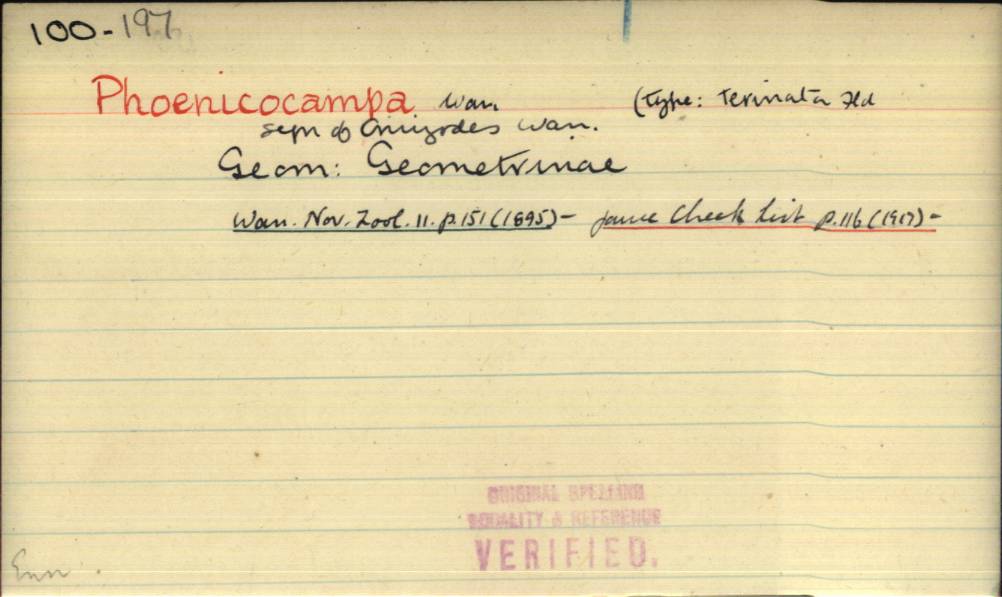 100-197
Phoenicocampa Warr. (type: terinata Fld
syn of Omizodes Warr.
Geom: Geometrinae
Warr. Nov. Zool. 11. p.151 (1895) - Janse Check List p.116 (1917) -
ORIGINAL SPELLING
& REFERENCE
VERIFIED.
Enn